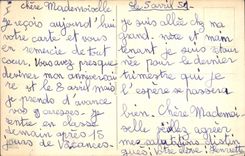 Chère Mademoiselle
je reçois aujourd'hui
votre carte et vous
en remercie de tout
cœur. Vous avez presque
deviner mon anniversaire
et le 8 avril mais
je prends d'avance
vos caresses. Je
rentre en classe
demain après 15
jours de vacances.
Le 5 avril 51
je suis allée chez ma
grand-mère et main
tenant je suis
pour le dernier
trimestre qui je
l'espère se passera
bien. Chère Mademoi
selle agréer
mes salutations